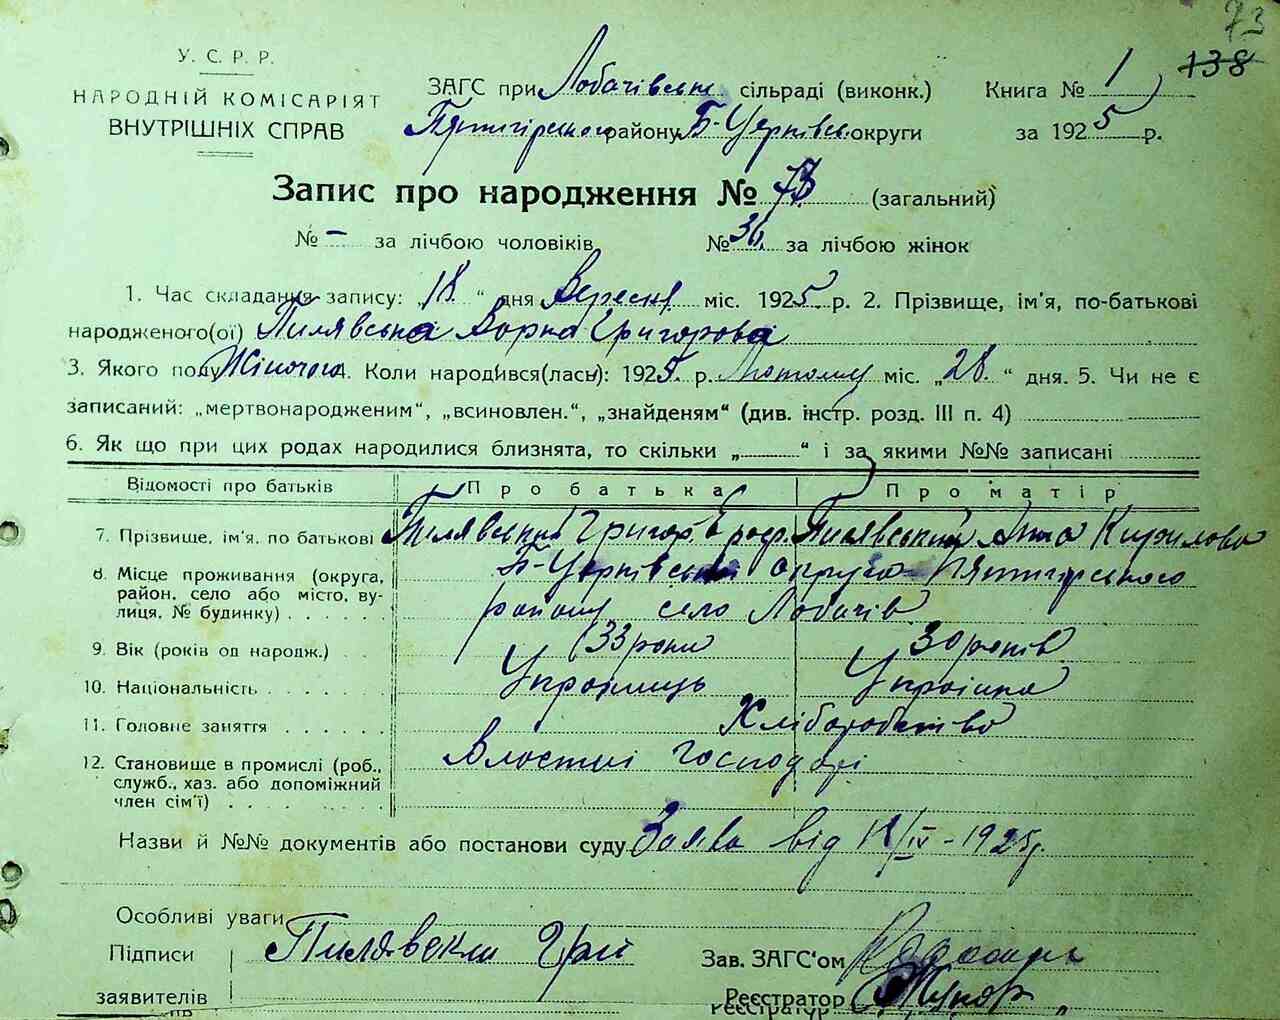 73
138
У. С. Р. Р.
НАРОДНІЙ КОМІСАРІЯТ
ВНУТРІШНІХ СПРАВ
ЗАГС при Лобачівськ. сільраді (виконк.) Книга № 1
П'ятигірського району Б-Церківськ. округи за 1925 р.
Запис про народження № 73 (загальний)
№ – за лічбою чоловіків, № 30. за лічбою жінок
1. Час складання запису: „18." дня Вересня міс. 1925 р. 2. Прізвище, ім'я, по-батькові
народженого(ої) Пилявська Григорова
3. Якого полу Жіночого. Коли народився(лась): 1925. р. Лютому міс. „28." дня. 5. Чи не є
записаний: „мертвонародженим", „всиновлен.", „знайденям" (див. інстр. розд. III п. 4)
6. Як що при цих родах народилися близнята, то скільки „ " і за якими №№ записані
Відомості про батьків Про батька Про матір
7. Прізвище, ім'я, по батькові Пилявський Григор. Єроф. Пилявський Анна Кирилова
8. Місце проживання (округа, Б-Церківська округа П'ятигірського
район, село або місто, ву-
лиця, № будинку) району село Лобачів
9. Вік (років од народж.) 33 роки 30 років
10. Національність Українець Українка
11. Головне заняття Хліборобство
12. Становище в промислі (роб., Властні господарі
служб., хаз. або допоміжний
член сім'ї)
Назви й №№ документів або постанови суду Заява від 18/IX-1925р.
Особливі уваги
Підписи Пилявски Гри
Зав. ЗАГС'ом
заявителів Реєстратор